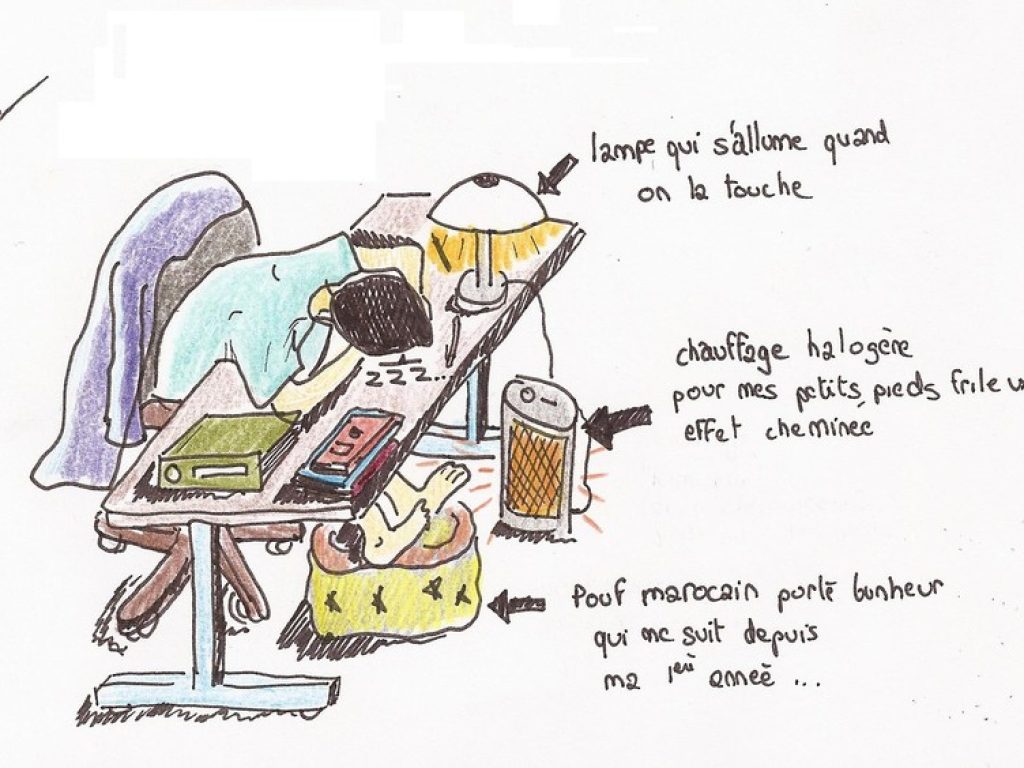 lampe qui s'allume quand
on la touche
zzz...
chauffage halogère
pour mes petits pieds frileu
effet cheminée
Pouf marocain porte bonheur
qui me suit depuis
ma 1ère année ...